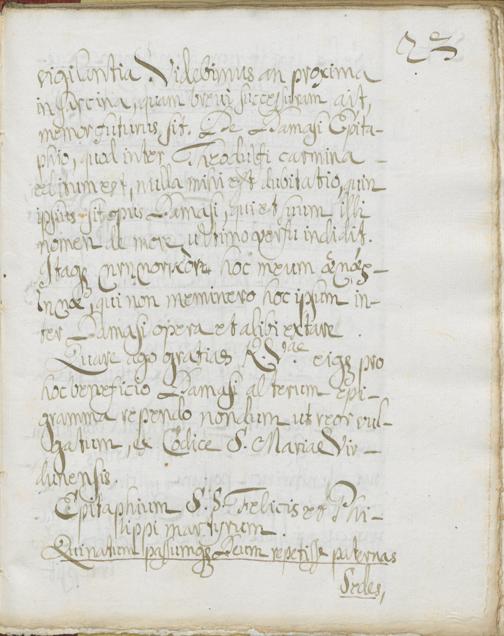 25
vigilantia. Videbimus an proxima
in Sarcina, quam brevi successuram ait,
memor futurus, sit. De Damasi Epita-
phio, quod inter Theodulfi carmina
editum est, nulla mihi est dubitatio, quin
ipsius sit opus Damasi, qui et suum illi
nomen de more ultimo versu indidit.
Itaq; hoc meum
qui non meminero hoc ipsum in-
ter Damasi opera et alibi extare.
Quare ago gratias R. V.rae eiq; pro
hoc beneficio Damasi alterum epi-
gramma rependo nondum ut reor vul-
gatum, de Codice S. Mariae Vir-
dunensis.
Epitaphium S.S. Felicis et Phi-
lippi martyrum.
Qui natum passumq; Deum repetisse paternas
Sedes,